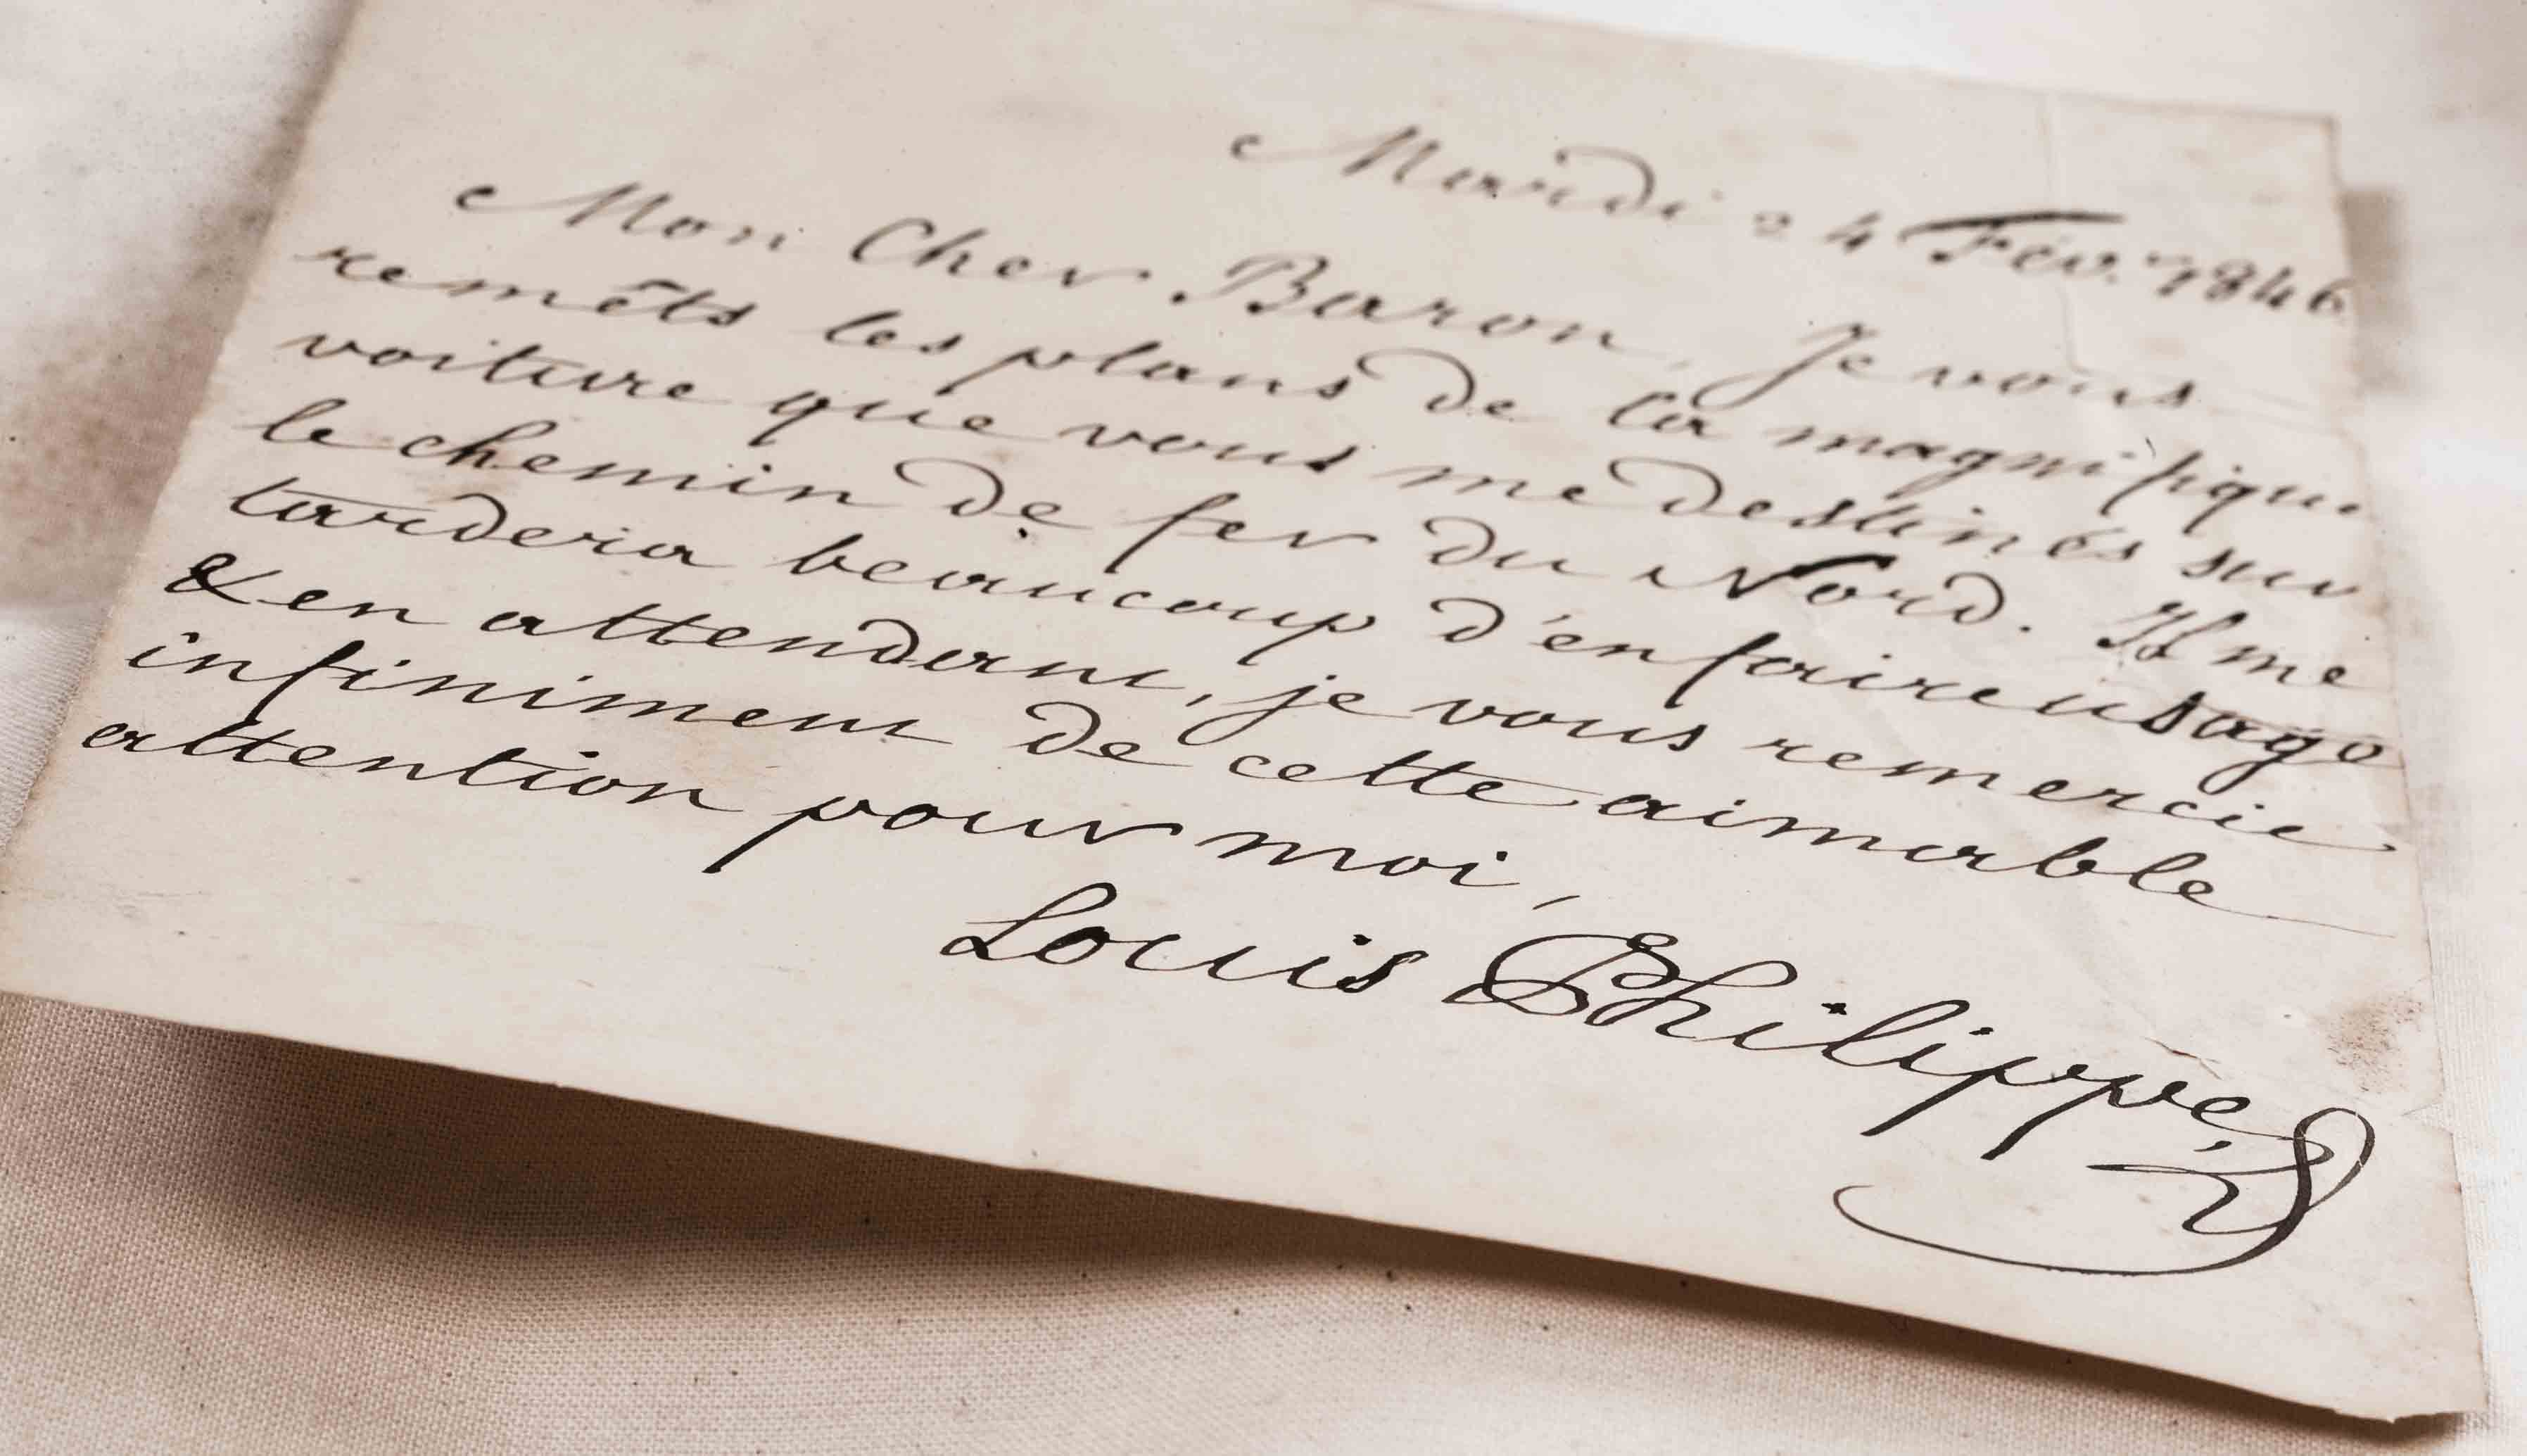 Mardi 24 Fév. 1846
Mon Cher Baron, Je vous
remêts les plans de la magnifique
voiture que vous me destinés sur
le chemin de fer du Nord. Il me
tardera beaucoup d'en faire usage
& en attendant, je vous remercie
infiniment de cette aimable
attention pour moi,
Louis Philippe